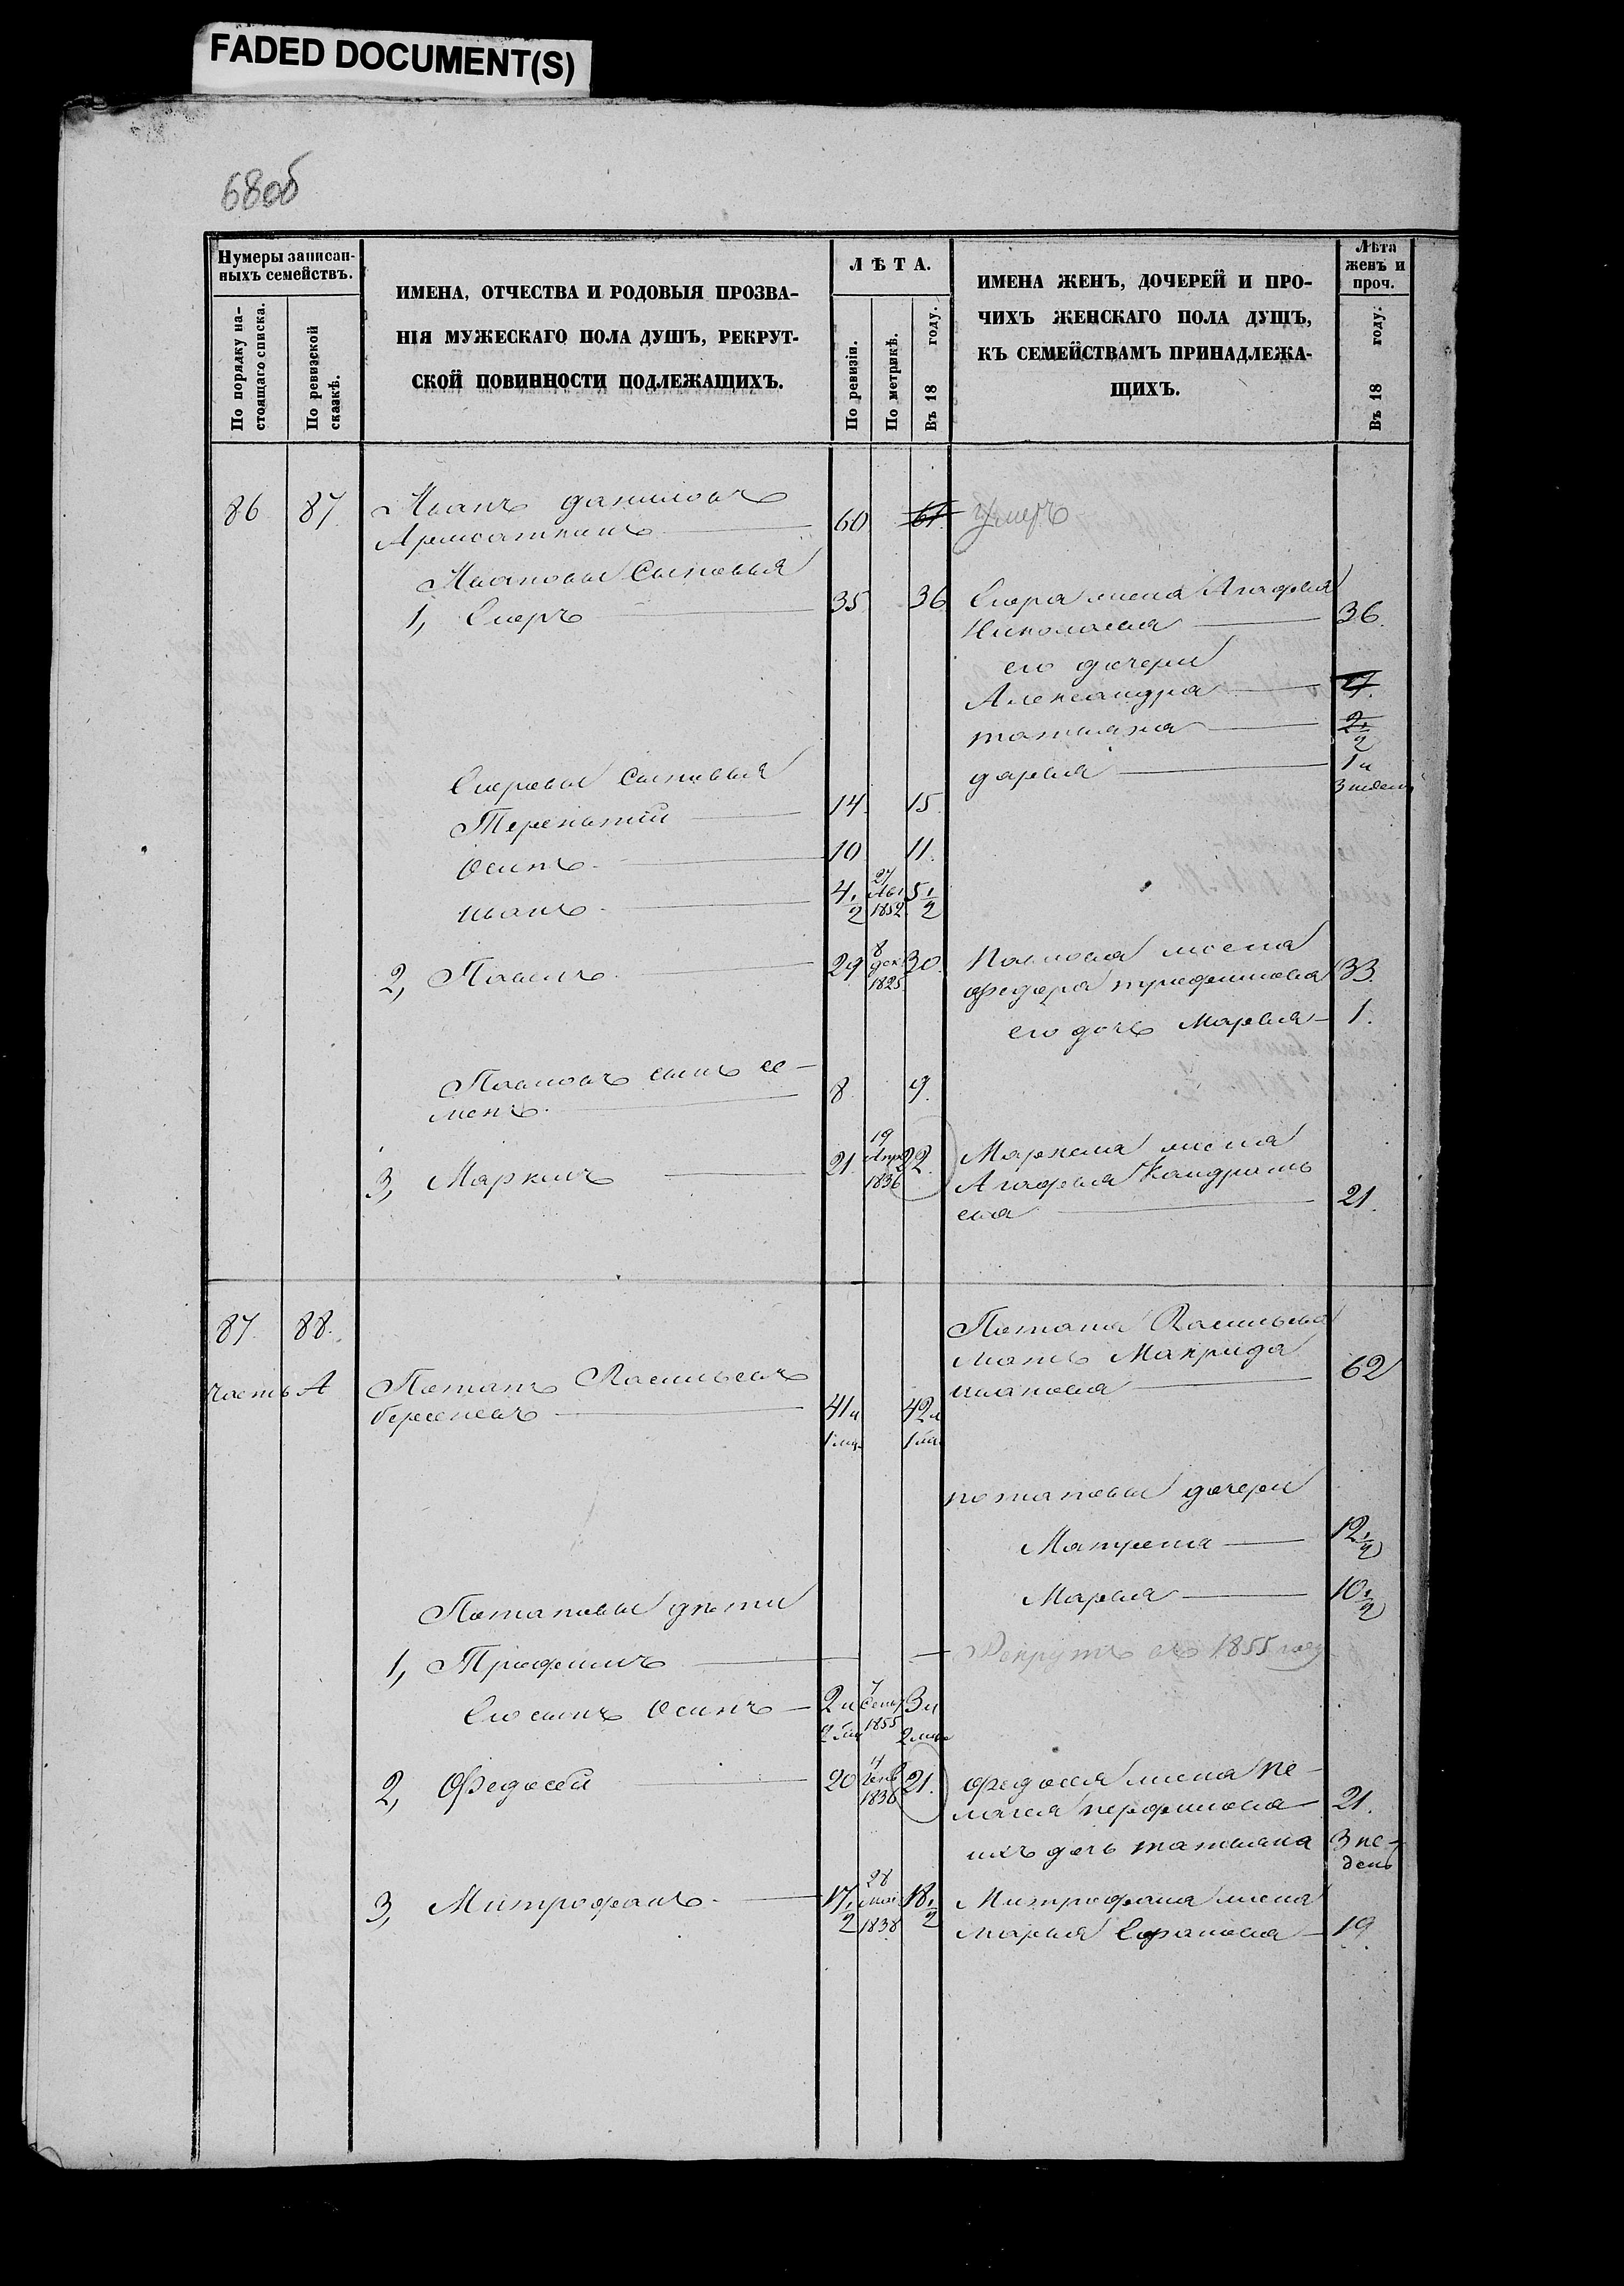 FADED DOCUMENT(S)
68об
Нумеры записан-
ныхъ семействъ.
По порядку на-
стоящаго списка.
По ревизской
сказкѣ.
ИМЕНА, ОТЧЕСТВА И РОДОВЫЯ ПРОЗВА-
НІЯ МУЖЕСКАГО ПОЛА ДУШЪ, РЕКРУТ-
СКОЙ ПОВИННОСТИ ПОДЛЕЖАЩИХЪ.
ЛѢТА.
По ревизіи.
По метрикѣ.
Въ 18 году.
ИМЕНА ЖЕНЪ, ДОЧЕРЕЙ И ПРО-
ЧИХЪ ЖЕНСКАГО ПОЛА ДУШЪ,
КЪ СЕМЕЙСТВАМЪ ПРИНАДЛЕЖА-
ЩИХЪ.
Лѣта
женъ и
проч.
Въ 18 году.
86 87 Иванъ даниловъ
60 61. умеръ
Ивановы сыновья
1, Егоръ 35 36 Егора жена Агафья
Николаева 36.
его дочери
Александра
татьяна 2 1/2
дарья 1 и
3 недели
Егоровы сыновья
Терентий 14 15
Осипъ 10 11.
иванъ 4 1/2 27 Авг 1852 5 1/2
2, Павелъ 29 8 дек 1825 30. Павлова жена
федора трофимова 33.
его дочь Марья 1.
Павловъ сынъ се-
менъ. 8 9.
3, Маркелъ 21. 19 Апр 1836 22. Маркела жена
Агафья Кандрать
ева 21.
87. 88.
часть А
Потапа Васильева
мать Макрида
ивановa 62
Потапъ Васильевъ
береневъ 41 и 42 и
1 мц. 1 мц.
потаповы дочери
Матрена 12 1/2
Марья 10 1/2
Потаповы дѣти
1, Трофимъ Рекрутъ съ 1855 году
Его сынъ Осипъ 2 и 7 Сент 1855 3 и
2 мц 2 мц
2, Федосей 20 1836 21. федосея жена пе-
лагея перфилова 21.
ихъ дочь татьяна 3 не-
дель
3, Митрофанъ 17 1/2 28 Мая 1838 18 1/2 Митрофана жена
марья Ефанова 19